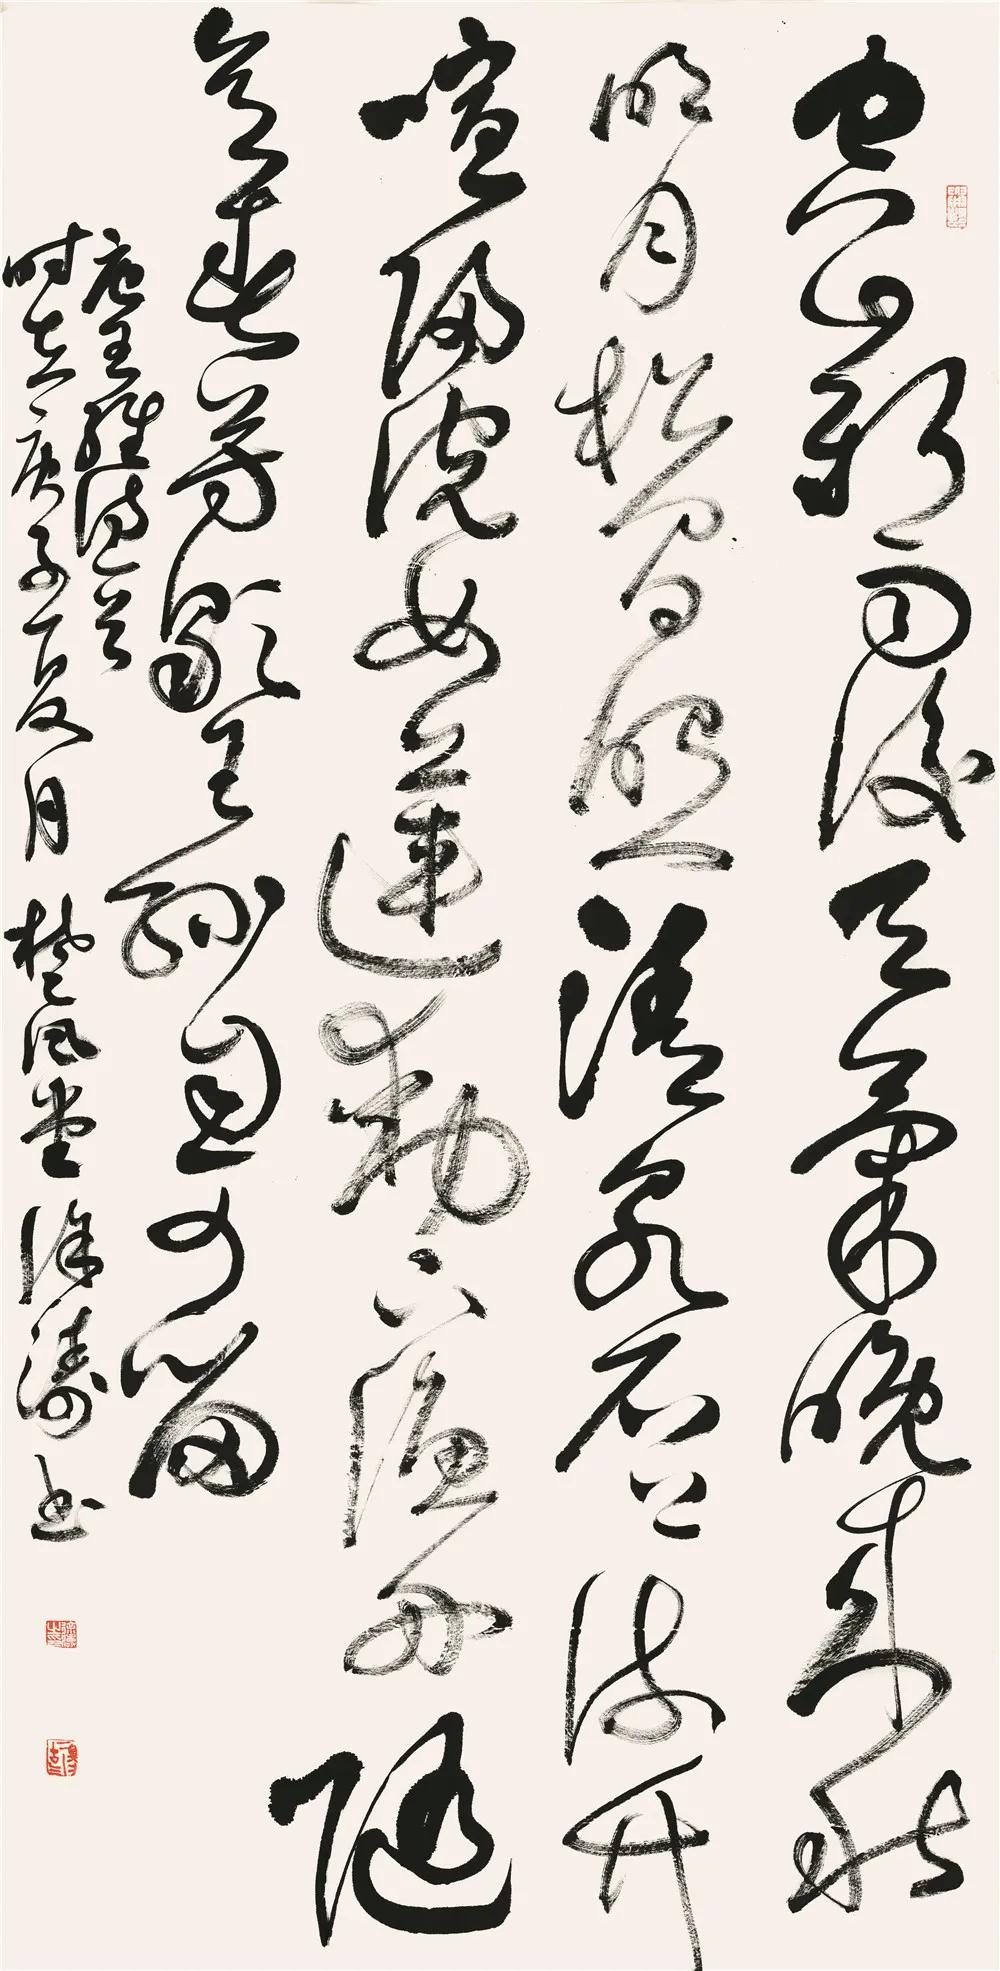 空山新雨後天氣晚來秋
明月松間照清泉石上流竹
喧歸浣女蓮動下漁舟隨
意春芳歇王孫自可留
唐王維詩一首
时在庚子夏月楚风堂徐濤书